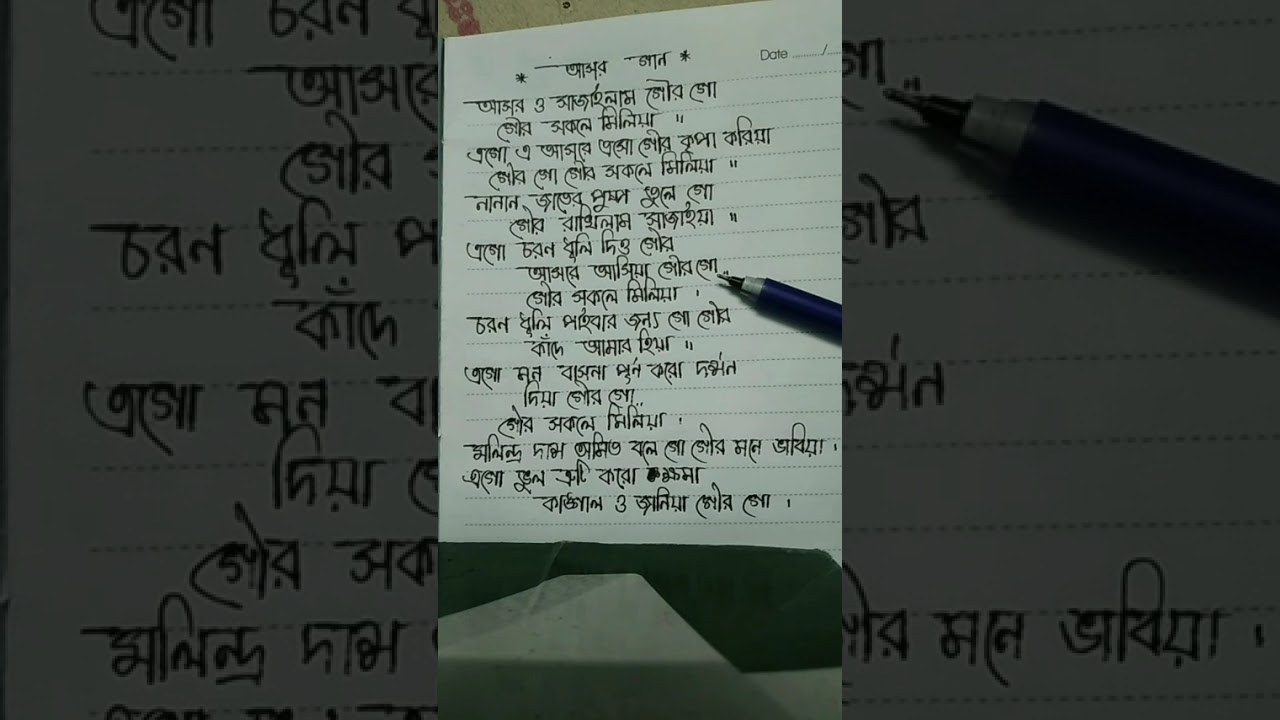 * আসর গান *
Date ........../...
আসর ও সাজাইলাম গৌর গো
গৌর সকলে মিলিয়া "
এগো এ আসরে এসো গৌর কৃপা করিয়া
গৌর গো গৌর সকলে মিলিয়া "
নানান জাতের পুষ্প তুলে গো
গৌর রাখিলাম সাজাইয়া "
এগো চরন ধূলি দিও গৌর
আসরে আসিয়া গৌর গো..
গৌর সকলে মিলিয়া ।
চরন ধূলি পাইবার জন্য গো গৌর
কাঁদে আমার হিয়া "
এগো মন বাসনা পূর্ন করো দর্শন
দিয়া গৌর গো..
গৌর সকলে মিলিয়া ।
মলিন্দ্র দাস অমিত বলে গো গৌর মনে ভাবিয়া ।
এগো ভুল ত্রুটি করো ক্ষমা
কাঙ্গাল ও জানিয়া গৌর গো ।